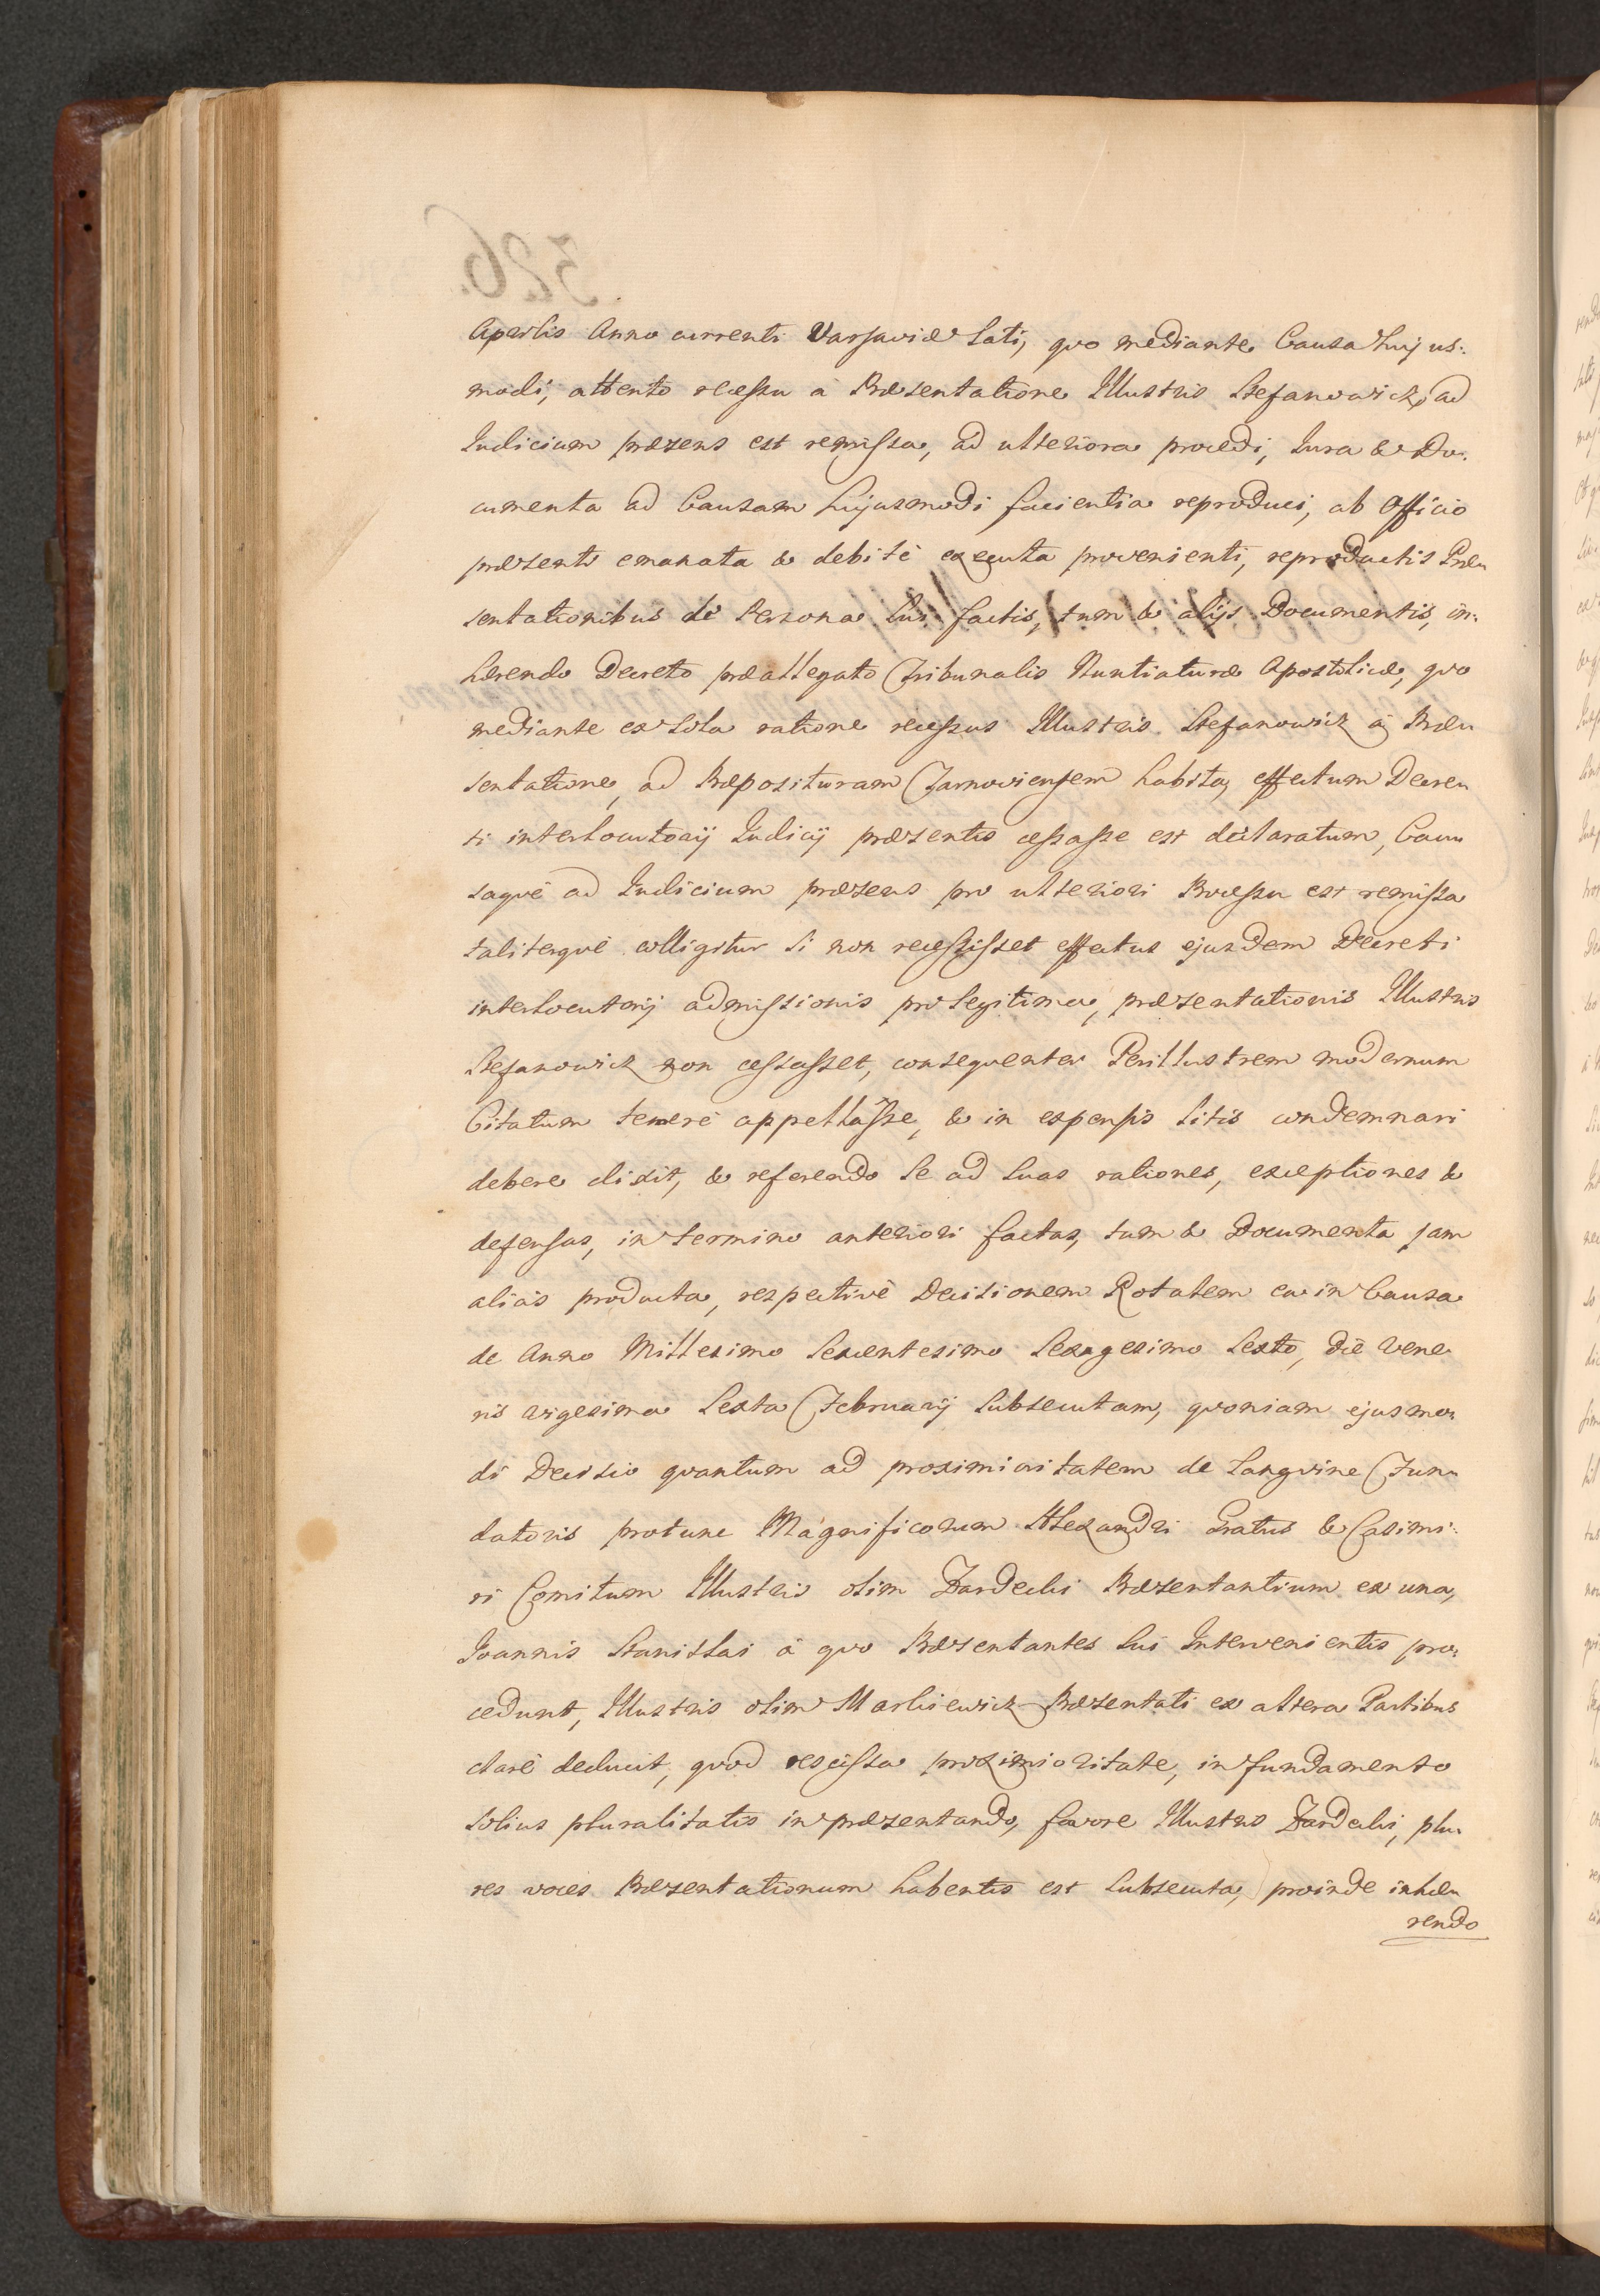 Aprilis Anno currenti Varsaviæ lati, quo mediante Causa huj us:
modi, attento recessu a Præsentatione Illustris Stefanowicz, ad
Iudicium præsens est remissa, ad ulteriora procedi, Iura & Do:
cumenta ad Causam hujusmodi facientia reproduci, ab Officio
præsenti emanata & debitè executa provenienti, reproductis Præ„
sentationibus de Persona Sui factis, tum & alijs Documentis, in:
hærendo Decreto præallegato Tribunalis Nuntiaturæ Apostolicæ, quo
mediante ex sola ratione recessus Illustris Stefanowicz à Præ„
sentatione, ad Præposituram Tarnoviensem habita, effectum Decre„
ti interlocutorij Iudicij præsentis cessasse est declaratum, Cau„
saquè ad Iudicium præsens pro ulteriori Processu est remissa
taliterquè colligitur si non recessisset effectus ejusdem Decreti
interlocutorij admissionis pro legitima, præsentationis Illustris
Stefanowicz non cessasset, consequenter Perillustrem modernum
Citatum temerè appellasse, & in expensis litis condemnari
debere dixit, & referendo se ad suas rationes, exceptiones &
defensas, in termino anteriori factas, tum & Documenta jam
aliàs producta, respectivè Decisionem Rotalem ea in Causa
de Anno Millesimo Sexcentesimo Sexagesimo Sexto, die Vene„
ris vigesima Sexta Februarij subsecutam, quoniam ejusmo„
di Decisio quantum ad proximioritatem de Sangvine Fun„
datoris protunc Magnificorum Alexandri Gratus & Casimi:
ri Comitum Illustris olim Zardecki Præsentantium ex una,
Joannis Stanislai à quo Præsentantes sui Intervenientis pro„
cedunt, Illustris olim Markiewicz Præsentati ex altera Partibus
clarè deducit, quod rescissa proximioritate, in fundamento
solius pluralitatis in præsentando, favore Illustris Zardecki, plu„
res voces Præsentationum habentis est subsecuta, proinde inhæ„
rendo